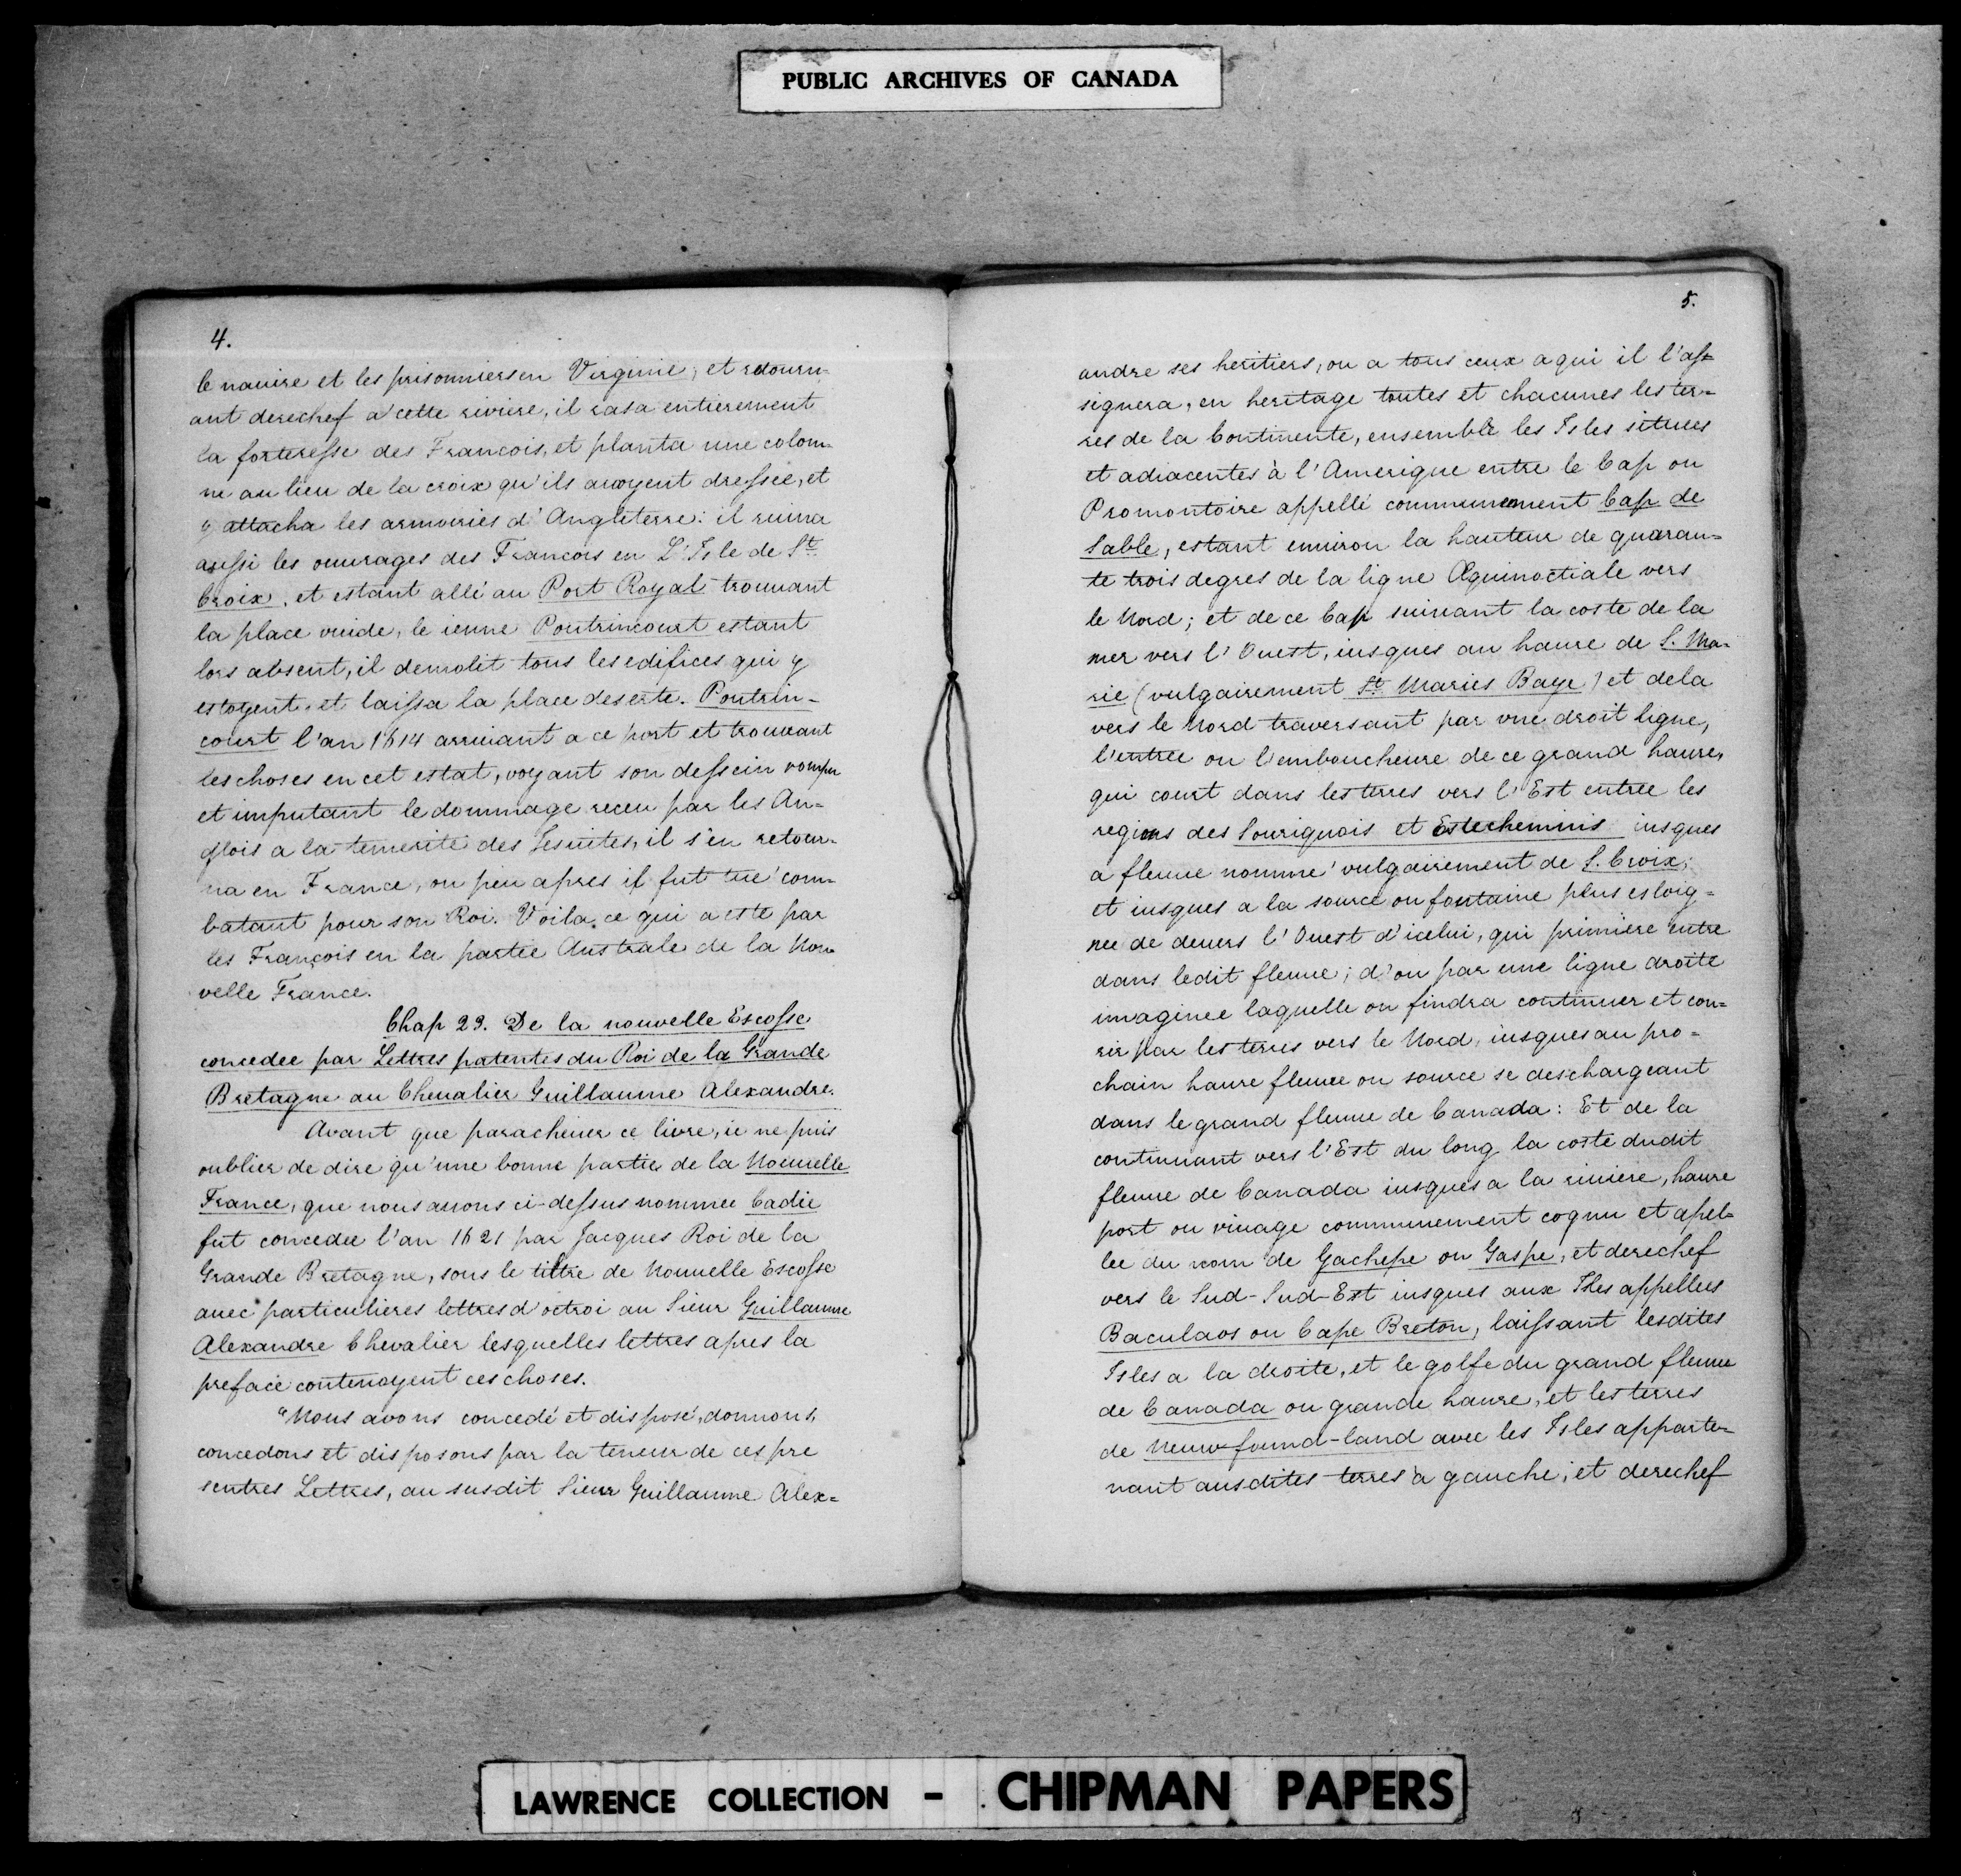 PUBLIC ARCHIVES OF CANADA
4.
le nauire et les prisonniers en Virginie, et retourn-
ant derechef a cette riviere, il rasa entierement
la forteresse des Francois, et planta une colom-
ne au lieu de la croix qu'ils avoyent dressée, et
y attacha les armoiries d'Angleterre: il ruina
aussi les ouurages des Francois en L'Isle de St.
Croix, et estant allé au Port Royal trouuant
la place vuide, le ieune Poutrincourt estant
lors absent, il demolit tous les edifices qui y
estoyent, et laissa la place deserte. Poutrin-
court l'an 1614 arriuant a ce port et trouuant
les choses en cet estat, voyant son dessein rompu
et imputant le dommage receu par les An-
glois a la temerite des Jesuites, il s'en retour-
na en France, ou peu apres il fut tué com-
batant pour son Roi. Voila ce qui a esté par
les François en la partie Australe de la Nou-
velle France.
Chap 23. De la nouvelle Escosse
concedee par Lettres patentes du Roi de la Grande
Bretagne au Cheualier Guillaume Alexandre.
Avant que paracheuer ce livre, ie ne puis
oublier de dire qu'une bonne partie de la Nouuelle
France, que nous auons ci-dessus nommee Cadie
fut concedee l'an 1621 par Jacques Roi de la
Grande Bretagne, sous le tiltre de Nouuelle Escosse
auec particulieres lettres d'octroi au Sieur Guillaume
Alexandre Chevalier lesquelles lettres apres la
preface contenoyent ces choses.
"Nous avons concedé et disposé, donnons,
concedons et disposons par la teneur de ces pre
sentres Lettres, au susdit Sieur Guillaume Alex=
5.
andre ses heritiers, ou a tous ceux a qui il l'as-
signera, en heritage toutes et chacunes les ter-
res de la Continente, ensemble les Isles situees
et adiacentes à l'Amerique entre le Cap ou
Promontoire appellé communement Cap de
Sable, estant enuiron la hauteur de quaran-
te trois degres de la ligne Æquinoctiale vers
le Nord; et de ce Cap suiuant la coste de la
mer vers l'Ouest, iusques au haure de S. Ma-
rie (vulgairement St. Maries Baye) et dela
vers le Nord traversant par vne droit ligne,
l'entree ou l'emboucheure de ce grand haure,
qui court dans les terres vers l'Est entree les
regions des Souriquois et Estechemins iusques
a fleuue nommé vulgairement de S. Croix;
et iusques a la source ou fontaine plus esloig-
nee de deuers l'Ouest d'icelui, qui primiere entre
dans ledit fleuue; d'ou par une ligne droite
imaginee laquelle on findra continuer et cou-
rir par les terres vers le Nord, iusques au pro-
chain haure fleuue ou source se deschargeant
dans le grand fleuue de Canada: Et de la
continuant vers l'Est du long la coste dudit
fleuue de Canada iusques a la riuiere, haure
port ou riuage communement cognu et apel-
lee du nom de Gachepe ou Gaspe, et derechef
vers le Sud-Sud-Est iusques aux Isles appellees
Baculaos ou Cape Breton, laissant lesdites
Isles a la droite, et le golfe du grand fleuue
de Canada ou grande haure, et les terres
de Neuw-found-land avec les Isles apparte-
nant ausdites terres a gauche; et derechef
LAWRENCE COLLECTION - CHIPMAN PAPERS